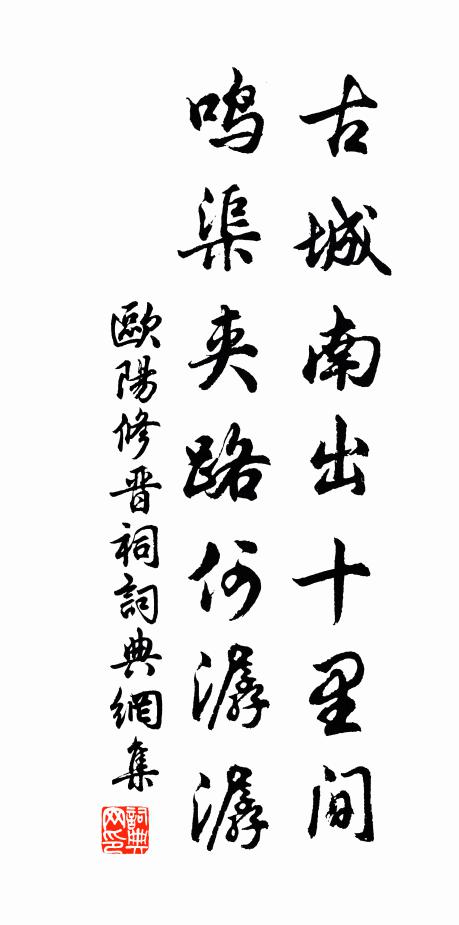 古城南出十里间
鸣渠夹路何潺潺
歐陽修晋祠詞典網集
詞典
网印